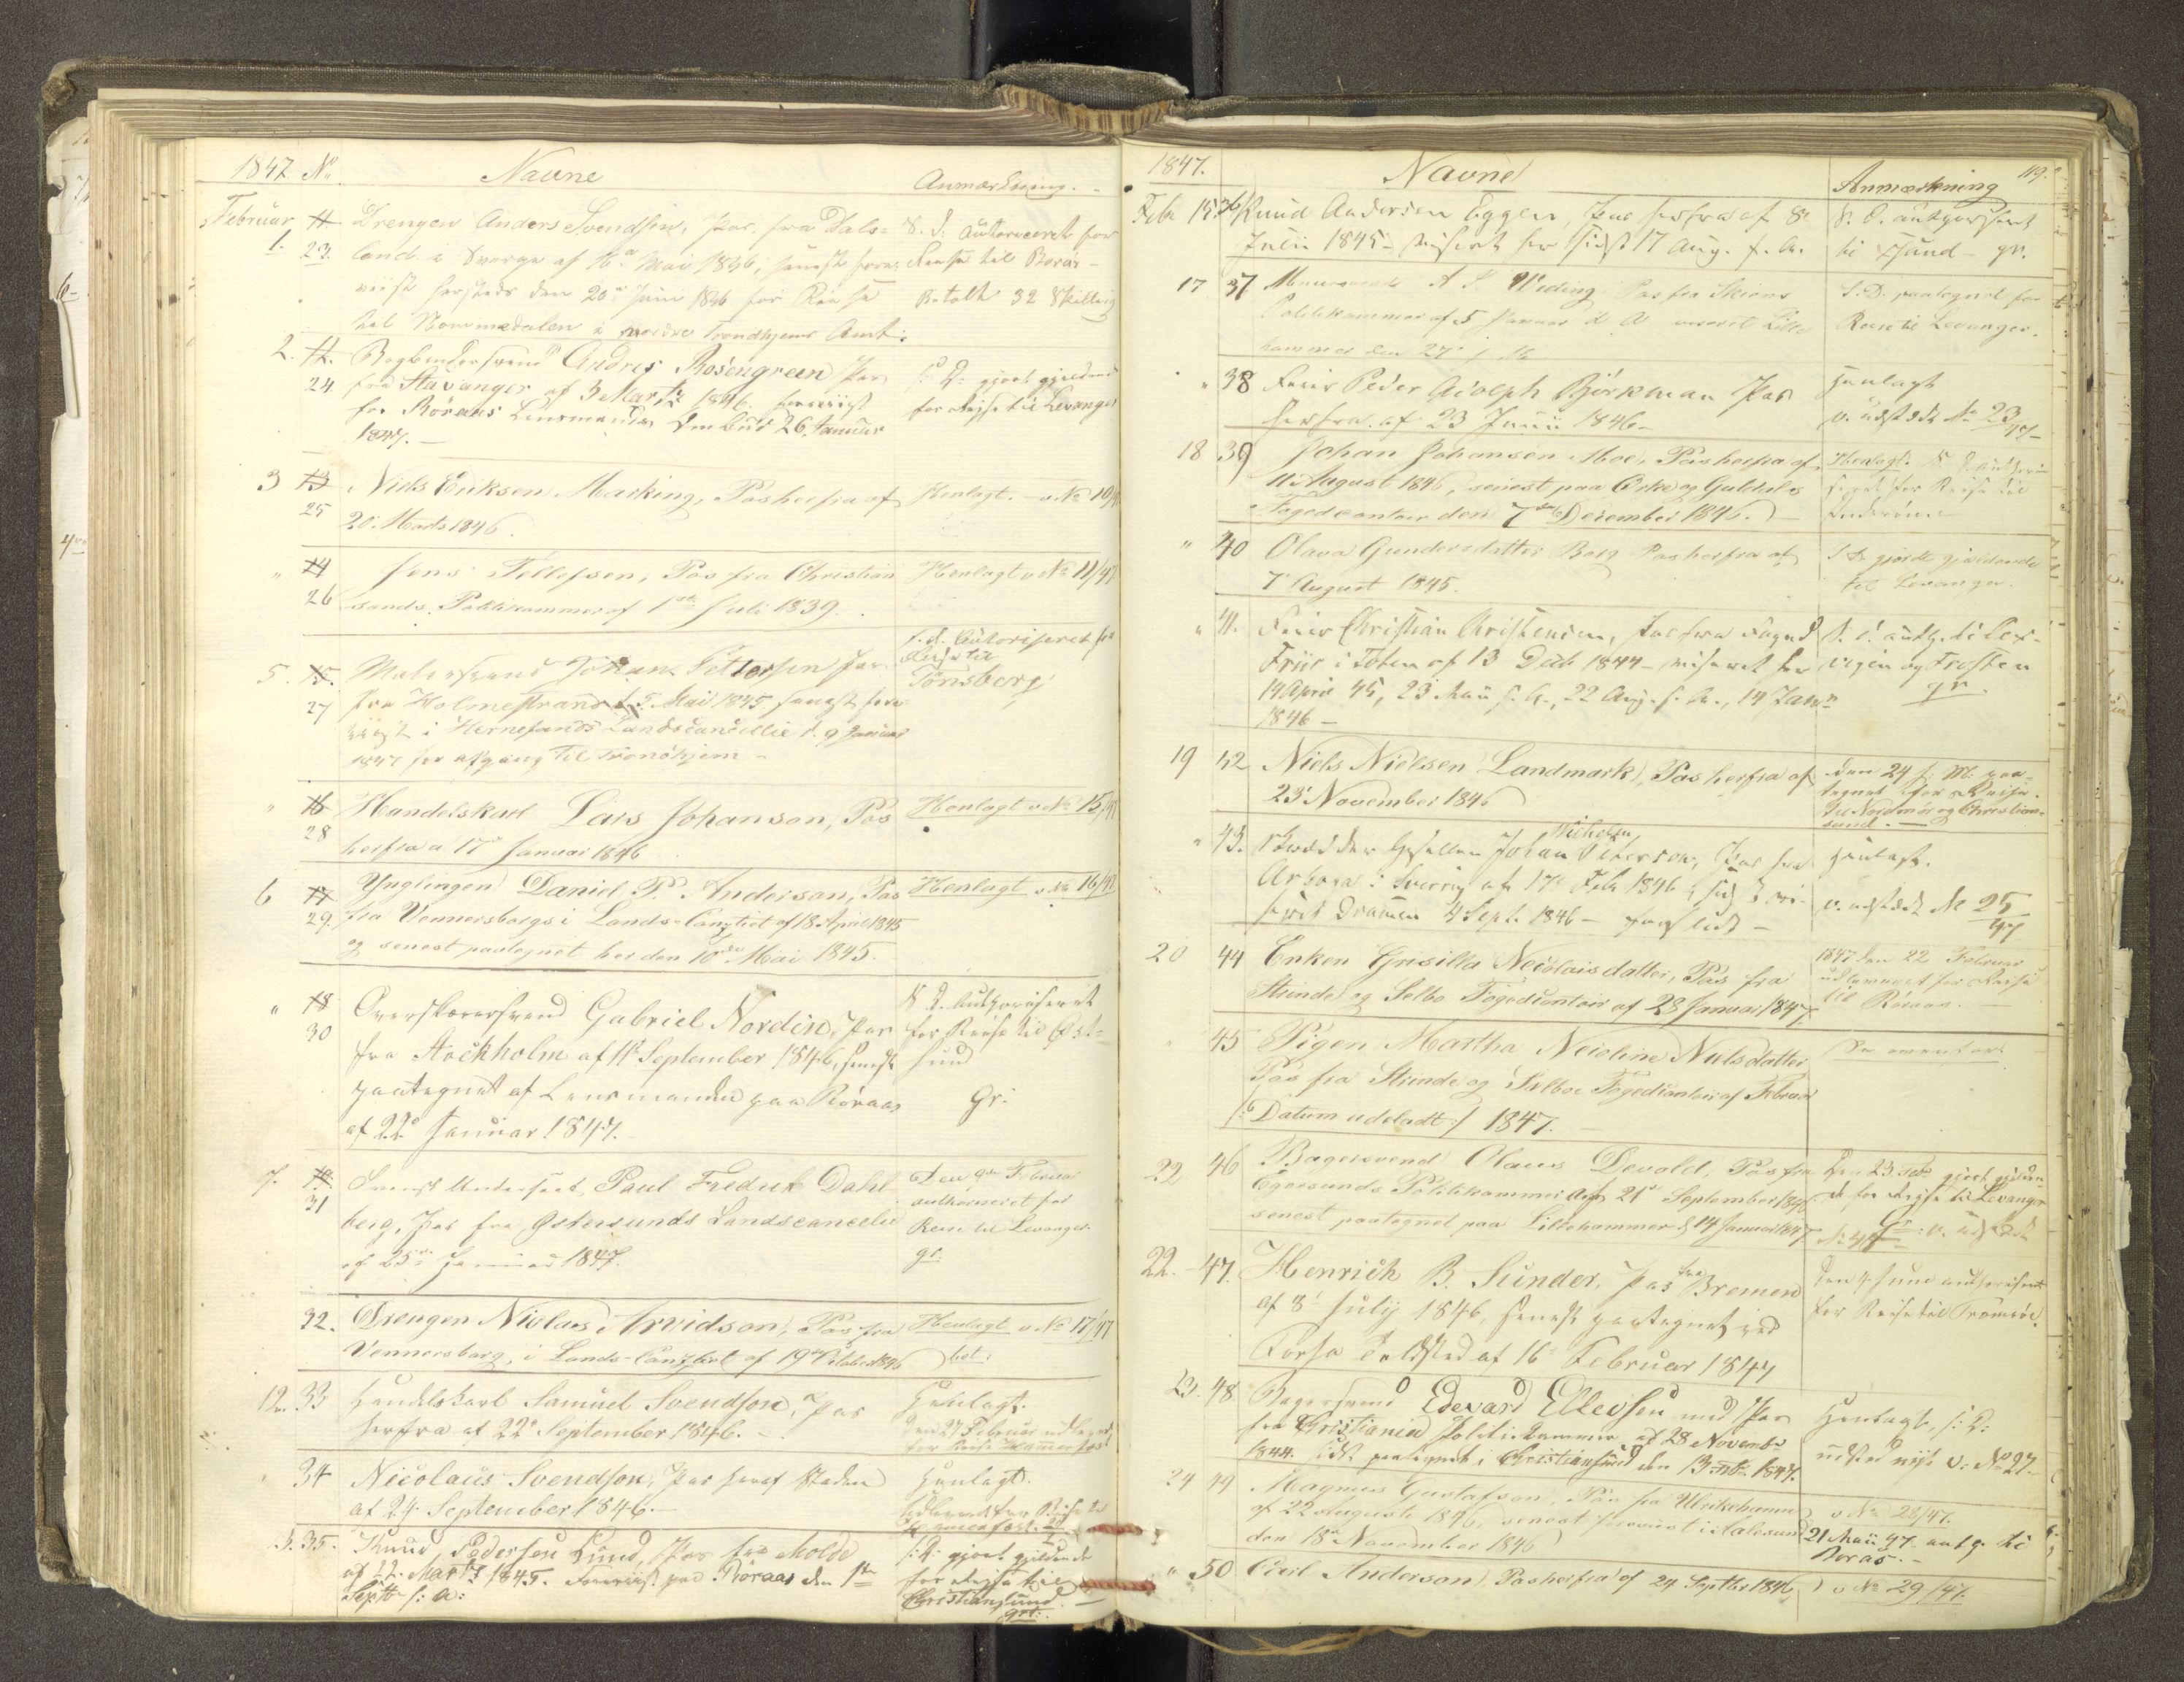 1847 No Navne Anmærkning.
Februar 11 Drengen Anders Svendsen, Pas fra Dals-
1. 23. land i Sverge af 16de Mai 1846, senest
den 20de Juni 1846 for Reise
til Nommedalen i nordre Trondhjems Amt.
S. D. Autoriseret for
Reise til Roraas
Betalt 32 Skilling
2. 12. Bogbindersvend Andres Rosengreen Pas
24 fra Stavanger af 3 Marts 1846. foreviist
for Röraas Lensmand 26. Januar
1847.
S: D: gjort gjeldende
for Rejse til Levanger
3 13 Niels Eriksen Marking, Pas herfra af
25 20. Marts 1846.
Henlagt. v No 10/47
" 14 Jens Tellefsen, Pas fra Christian
26 sands Politikammer af 1ste Juli 1839.
Henlagt v No 11/47
5. 15. Malersvend Johan Pettersen Pas
27 fra Holmestrand af 5 Mai 1845 senest fore
viist i Hernesands Landscancellie d. 9 Januar
1847 for afgang til Trondhjem
S. d. Autoriseret for
Reise til
Tönsberg
" 16 Handelskarl Lars Johanson, Pas
28 herfra a 17de Januar 1846
Henlagt v No 15/47
6 17 Ynglingen Daniel P. Anderson, Pas
29. fra Vennersborgs i Lands-Canzliet af 18 April 1845
og senest paategnet her den 10de Mai 1845.
Henlagt v No 16/47
" 18 Overskærersvend Gabriel Nordin, Pas
30 fra Stockholm af 11te September 1846, senest
paategnet af Lensmanden paa Röraas
af 22de Januar 1847.
S. D. Authoriseret
for Reise til Öst-
sund
Gr.
7. 19. Svensk Undersaat, Paul Fredrik Dahl
31 berg, Pas fra Östersunds Landscancelie
af 25de Januar 1847.
Den 9de Februar
authoriseret for
Reise til Levanger
gr.
32. Drengen Niclas Arvidson, Pas fra
Vennersborg, i Lands-Canzliet af 19de October 1846
Henlagt v No 17/47
bet:
12. 33 Handelskarl Samuel Svendson, Pas
herfra af 22de September 1846.
Henlagt.
den 27 Februar udleveret
for Reise Hammerfest
34 Nicolaus Svendson, Pas heraf Staden
af 24. September 1846.
Henlagt.
Udleveret for Reise til
Hammerfest.
13. 35. Knud Pedersen Lund, Pas fra Molde
af 22. Marts 1845. Foreviist paa Roraas den 1ste
Septbr s: a:
S: D: gjort gjeldende
for Rejse til
Christiansund
grt:
1847. Navne Anmærkning 119.
Febr 15 36 Knud Andersen Eggen, Pas herfra af 8de
Julii 1845 - viseret her sidst 17 Aug. f. A.
S. D. authoriseret
til Sund gr.
17 37 A P Widing, Pas fra Skiens
Politikammer af 5 Januar d A viseret Lille
hammer den 27de
S. D. paategnet for
Reise til Levanger.
" 38 Peder Adolph Björkman Pas
herfra af 23 Junii 1846
Henlagt
v. udstedt No 23/47
18 39 Johan Johansen Moe, Pas herfra af
11 August 1846, senest paa Orke og Guldals
Fogedcontoir den 7de December 1846.
Henlagt. S. D
for Reise til
Inderöen
" 40 Olava Gundersdatter Berg Pas herfra af
7de August 1845.
S. D. gjordt gjældende
til Levanger.
" 41. Christian Christensen, Pas fra Foged
Friis i Toten af 13 Decb 1844 - viseret her
14 April 45, 23 Mai s. A., 22 Aug. s. A., 14 Janr
1846 -
S. D. auth. til Lex-
vigen og Frosten
gr.
19 42 Niels Nielsen Landmark, Pas herfra af
23de November 1846
den 24 s. M. paa-
tegnet for Reise
til Nordmör og Christian-
sund.
" 43. Skrædder Gesellen Johan Wilhelm Peterson, Pas fra
Arboga i Sverrig af 17de Febr 1846, sidst vi-
seret Drammen 4 Sept. 1846 -
Henlagt.
v. udstedt No 25/47
20 44 Enken Grisilla Necolaisdatter, Pas fra
Strinde og Selbo Fogedcontoir af 28 Januar 1847.
1847 den 22 Februar
udleveret for Reise
til Röraas.
" 45 Pigen Martha Neicline Nielsdatter
Pas fra Strinde og Selboe Fogedcontoir af Februar
/: Datum udeladt :/ 1847.
Se ovenfor.
22 46 Bagersvend Olaus Devold, Pas fra
Egersunds Politikammer af 21de September 1846
senest paategnet paa Lillehammer d 14 Januar 1847
Den 23 Feb gjort gjelden-
de for Rejse til Levanger
22. 47. Henrich B. Sünder, Pas fra Bremen
af 8de July 1846, senest paategnet ved
Toldsted af 16de Februar 1847
Den 4 Juni authoriseret
for Reise til Tromsöe.
23. 48. Bagersvend Edevard Ellevsen med Pas
fra Christiania Politikammer af 28 Novembr
1844. sidst paategnet i Christiansund den 13 Feb. 1847.
Henlagt, S: D:
udsted nyt v: No 27
24 49 Magnus Gustafson, Pas fra Ulrikehamn
af 22 Augusti 1846, senest foreviist i Aalesund
den 18de November 1846
v No 28/47.
21 Mai 47 auth. til
Roraas.
" 50 Carl Anderson, Pas herfra af 24 Septbr 1846,
v No 29/47.